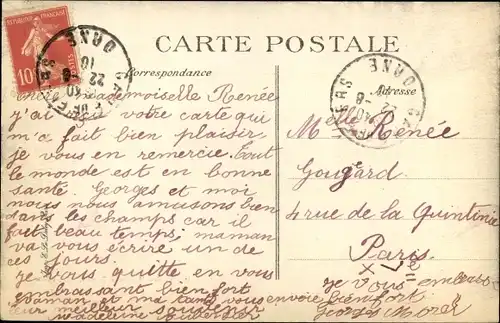 CARTE POSTALE
Correspondance
Adresse
RÉPUBLIQUE FRANÇAISE
10
Mademoiselle Renée
j'ai reçu votre carte qui
m'a fait bien plaisir
je vous en remercie. Tout
le monde est en bonne
santé. Georges et moi
nous nous amusons bien
dans les champs car il
fait beau temps; maman
va vous écrire un de
ces jours.
je vous quitte en vous
embrassant bien fort
Maman et ma tante vous envoie
leur meilleur souvenir
Madeleine
Melle Renée
Gougard
4 rue de la Quintinie
Paris
X Ve
je vous embrasse
bien fort
Georges